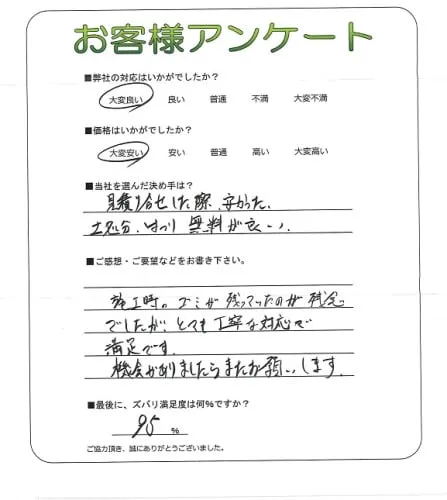 お客様アンケート
■弊社の対応はいかがでしたか?
大変良い 良い 普通 不満 大変不満
■価格はいかがでしたか?
大変安い 安い 普通 高い 大変高い
■当社を選んだ決め手は?
見積り合せした際、安かった、
土処分、はつり 無料が良い、
■ご感想・ご要望などをお書き下さい。
施工時の ゴミが 残ってったのが 残念
でしたが、とても丁寧な対応で
満足です。
機会がありましたらまたお願いします。
■最後に、ズバリ満足度は何%ですか?
95 %
ご協力頂き、誠にありがとうございました。